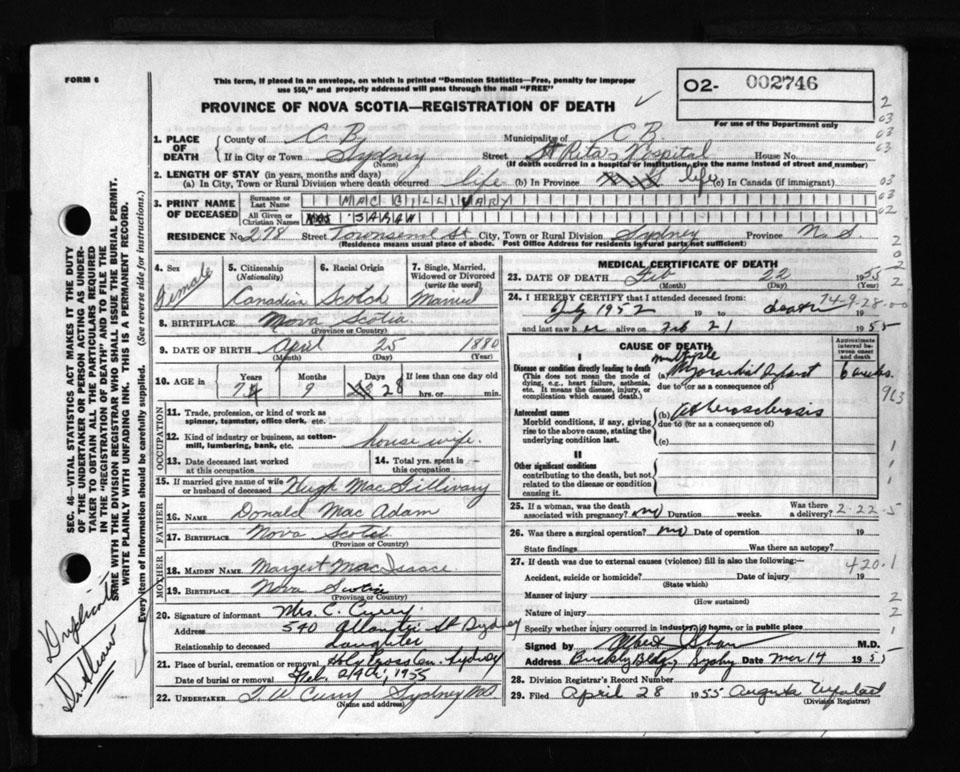 FORM 6
This form, if placed in an envelope, on which is printed "Dominion Statistics—Free, penalty for improper
use $50," and properly addressed will pass through the mail "FREE"
02- 002746
For use of the Department only
PROVINCE OF NOVA SCOTIA—REGISTRATION OF DEATH
1. PLACE OF DEATH County of C. B. Municipality of C B.
If in City or Town Sydney Street St Rita's Hospital House No.
(Name) (If death occurred in a hospital or institution, give the name instead of street and number)
2. LENGTH OF STAY (in years, months and days)
(a) In City, Town or Rural Division where death occurred life (b) In Province life (c) In Canada (if immigrant)
3. PRINT NAME OF DECEASED Surname or Last Name MAC GILLIVARY
All Given or Christian Names SARAH
RESIDENCE No. 278 Street Townsend St. City, Town or Rural Division Sydney Province N. S.
(Residence means usual place of abode. Post Office Address for residents in rural parts not sufficient)
4. Sex Female
5. Citizenship (Nationality) Canadian
6. Racial Origin Scotch
7. Single, Married, Widowed or Divorced (write the word) Married
8. BIRTHPLACE Nova Scotia
(Province or Country)
9. DATE OF BIRTH April 25 1880
(Month) (Day) (Year)
10. AGE in Years Months Days If less than one day old
74 9 28 hrs. or min.
OCCUPATION
11. Trade, profession, or kind of work as spinner, teamster, office clerk, etc.
12. Kind of industry or business, as cotton-mill, lumbering, bank, etc. house wife.
13. Date deceased last worked at this occupation
14. Total yrs. spent in this occupation
15. If married give name of wife or husband of deceased Hugh MacGillivary
FATHER
16. NAME Donald Mac Adam
17. BIRTHPLACE Nova Scotia
(Province or Country)
MOTHER
18. MAIDEN NAME Margert MacIsaac
19. BIRTHPLACE Nova Scotia
(Province or Country)
20. Signature of informant Mrs. C. Curry
Address 540 St Sydney
Relationship to deceased Daughter
21. Place of burial, cremation or removal Holy Cross Cem. Sydney
Date of burial or removal Feb. 24th, 1955
22. UNDERTAKER T. W. Curry Sydney NS
(Name and address)
MEDICAL CERTIFICATE OF DEATH
23. DATE OF DEATH Feb 22 1955
(Month) (Day) (Year)
24. I HEREBY CERTIFY that I attended deceased from
July 1952 19 to death 19
74-9-28-00
and last saw her alive on Feb 21 1955
CAUSE OF DEATH
Approximate interval between onset and death
I
Disease or condition directly leading to death (This does not mean the mode of dying, e.g., heart failure, asthenia, etc. It means the disease, injury, or complication which caused death.)
(a) multiple Myocardial Infarct 6 weeks.
due to (or as a consequence of)
Antecedent causes
Morbid conditions, if any, giving rise to the above cause, stating the underlying condition last.
(b) Atherosclerosis
due to (or as a consequence of)
(c)
II
Other significant conditions contributing to the death, but not related to the disease or condition causing it.
25. If a woman, was the death associated with pregnancy? no Duration weeks. Was there a delivery?
2-22-5
26. Was there a surgical operation? no Date of operation 19
State findings Was there an autopsy?
27. If death was due to external causes (violence) fill in also the following:—
420.1
Accident, suicide or homicide? Date of injury 19
(State which)
Manner of injury
(How sustained)
Nature of injury
Specify whether injury occurred in industry, home, or in public place
Signed by M.D.
Address Date Mar 14 1955
28. Division Registrar's Record Number
29. Filed April 28 1955 Augusta
(Division Registrar)
SEC. 46—VITAL STATISTICS ACT MAKES IT THE DUTY
OF THE UNDERTAKER OR PERSON ACTING AS UNDER-
TAKER TO OBTAIN ALL THE PARTICULARS REQUIRED
IN THE "REGISTRATION OF DEATH" AND TO FILE THE
SAME WITH THE DIVISION REGISTRAR WHO SHALL ISSUE THE BURIAL PERMIT.
WRITE PLAINLY WITH UNFADING INK. THIS IS A PERMANENT RECORD.
Every item of information should be carefully supplied. (See reverse side for instructions.)
Duplicate